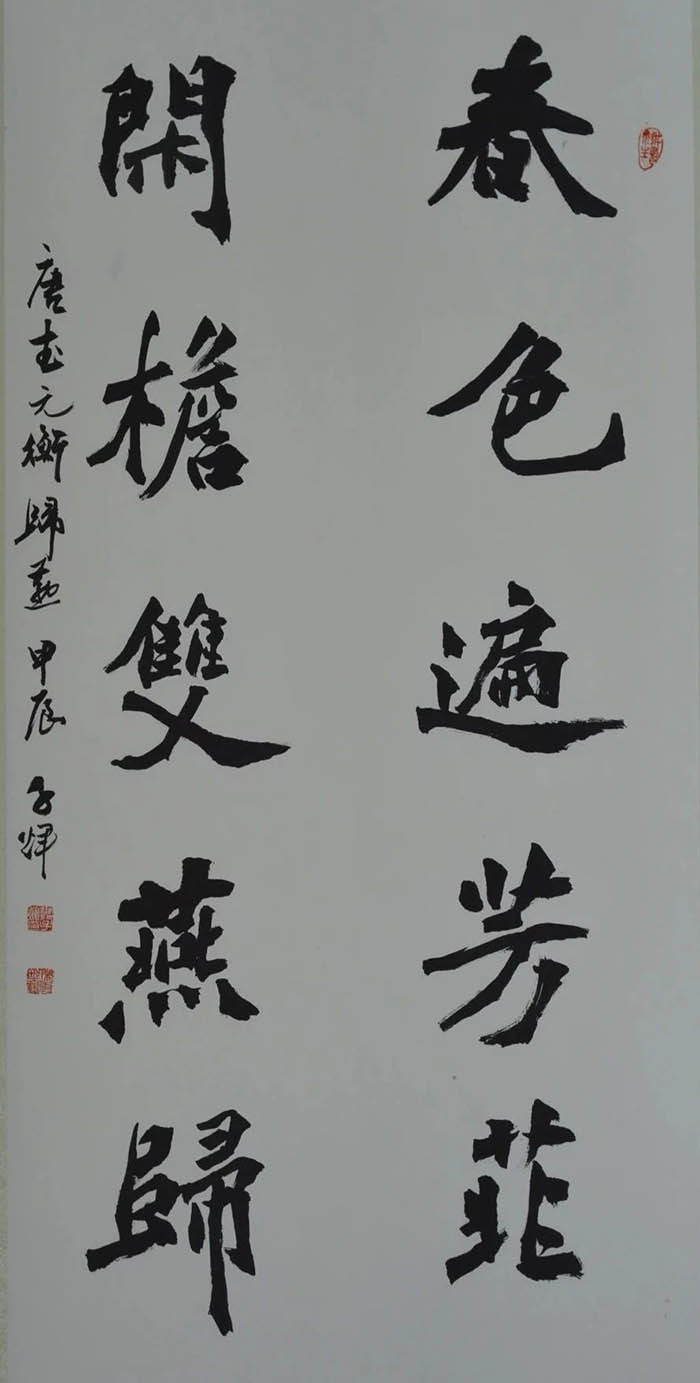 春色遍芳菲
閑檐雙燕歸
唐武元衡歸燕 甲辰 子輝